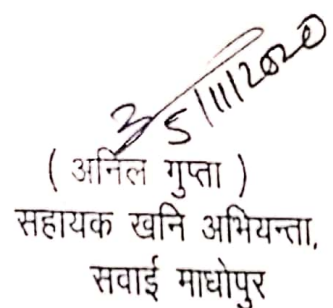 5/11/2020
( अनिल गुप्ता )
सहायक खनि अभियन्ता,
सवाई माधोपुर